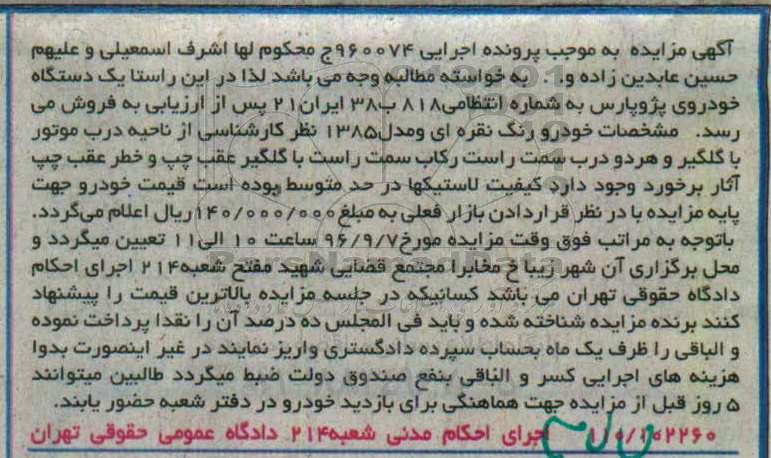 آگهی مزایده به موجب پرونده اجرایی ۹۶۰۰۷۴ج محکوم لها اشرف اسمعیلی و علیهم
حسین عابدین زاده و. به خواسته مطالبه وجه می باشد لذا در این راستا یک دستگاه
خودروی پژوپارس به شماره انتظامی۸۱۸ ب۳۸ ایران۲۱ پس از ارزیابی به فروش می
رسد. مشخصات خودرو رنگ نقره ای ومدل۱۳۸۵ نظر کارشناسی از ناحیه درب موتور
با گلگیر و هردو درب سمت راست رکاب سمت راست با گلگیر عقب چپ و خطر عقب چپ
آثار برخورد وجود دارد کیفیت لاستیکها در حد متوسط بوده است قیمت خودرو جهت
پایه مزایده با در نظر قراردادن بازار فعلی به مبلغ۱۴۰/۰۰۰/۰۰۰ریال اعلام می‌گردد.
باتوجه به مراتب فوق وقت مزایده مورخ۹۶/۹/۷ ساعت ۱۰ الی۱۱ تعیین میگردد و
محل برگزاری آن شهر زیبا خ مخابرا مجتمع قضایی شهید مفتح شعبه۲۱۴ اجرای احکام
دادگاه حقوقی تهران می باشد کسانیکه در جلسه مزایده بالاترین قیمت را پیشنهاد
کنند برنده مزایده شناخته شده و باید فی المجلس ده درصد آن را نقدا پرداخت نموده
و الباقی را ظرف یک ماه بحساب سپرده دادگستری واریز نمایند در غیر اینصورت بدوا
هزینه های اجرایی کسر و الباقی بنفع صندوق دولت ضبط میگردد طالبین میتوانند
۵ روز قبل از مزایده جهت هماهنگی برای بازدید خودرو در دفتر شعبه حضور یابند.
۱۱۰/۱۰۲۲۶۰ اجرای احکام مدنی شعبه۲۱۴ دادگاه عمومی حقوقی تهران
ParsNamadData